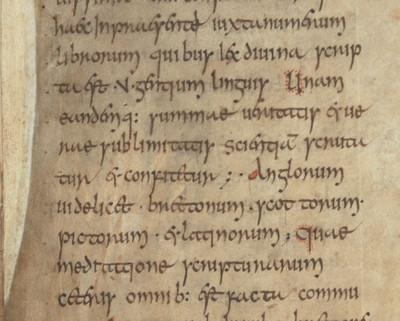 haec inpraesenti iuxta numerum
librorum quibus lex diuina scrip
ta est · V · gentium linguis Unam
eandemq: summae ueritatis & ue
rae sublimitatis scientiā scruta
tur & confitetur ; · Anglorum
uidelicet · brettonum · scottorum ·
pictorum · & latinorum ; Quae
meditatione scripturarum
ceteris omnib: est facta commu